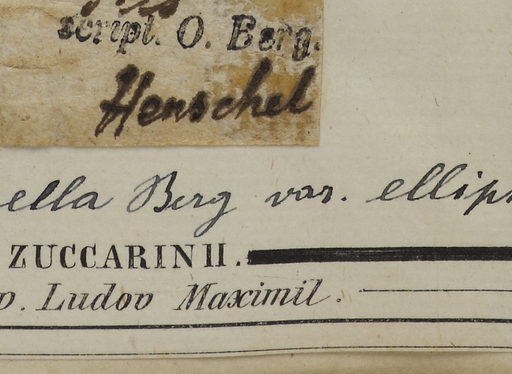 script. O. Berg.
Henschel
ella Berg var. ellip
ZUCCARINII.
p. Ludov Maximil.